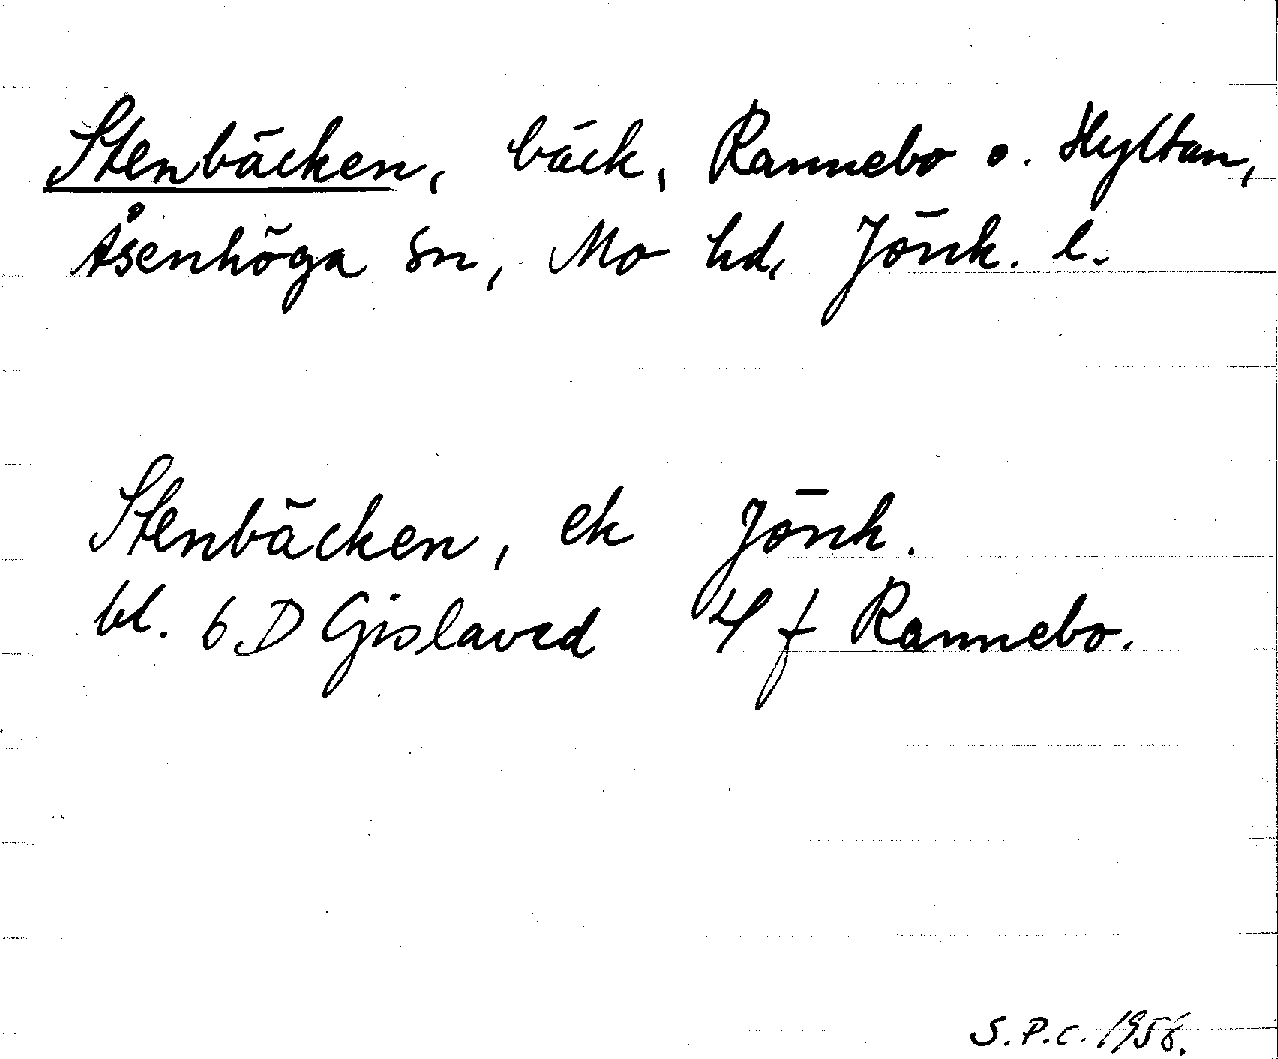 Stenbäcken, bäck, Rannebo o. Hyltan,
Åsenhöga sn, Mo hd, Jönk. l.
Stenbäcken, ek Jönk.
bl. 6 D Gislaved 4 f Rannebo.
S.P.C. 1958.